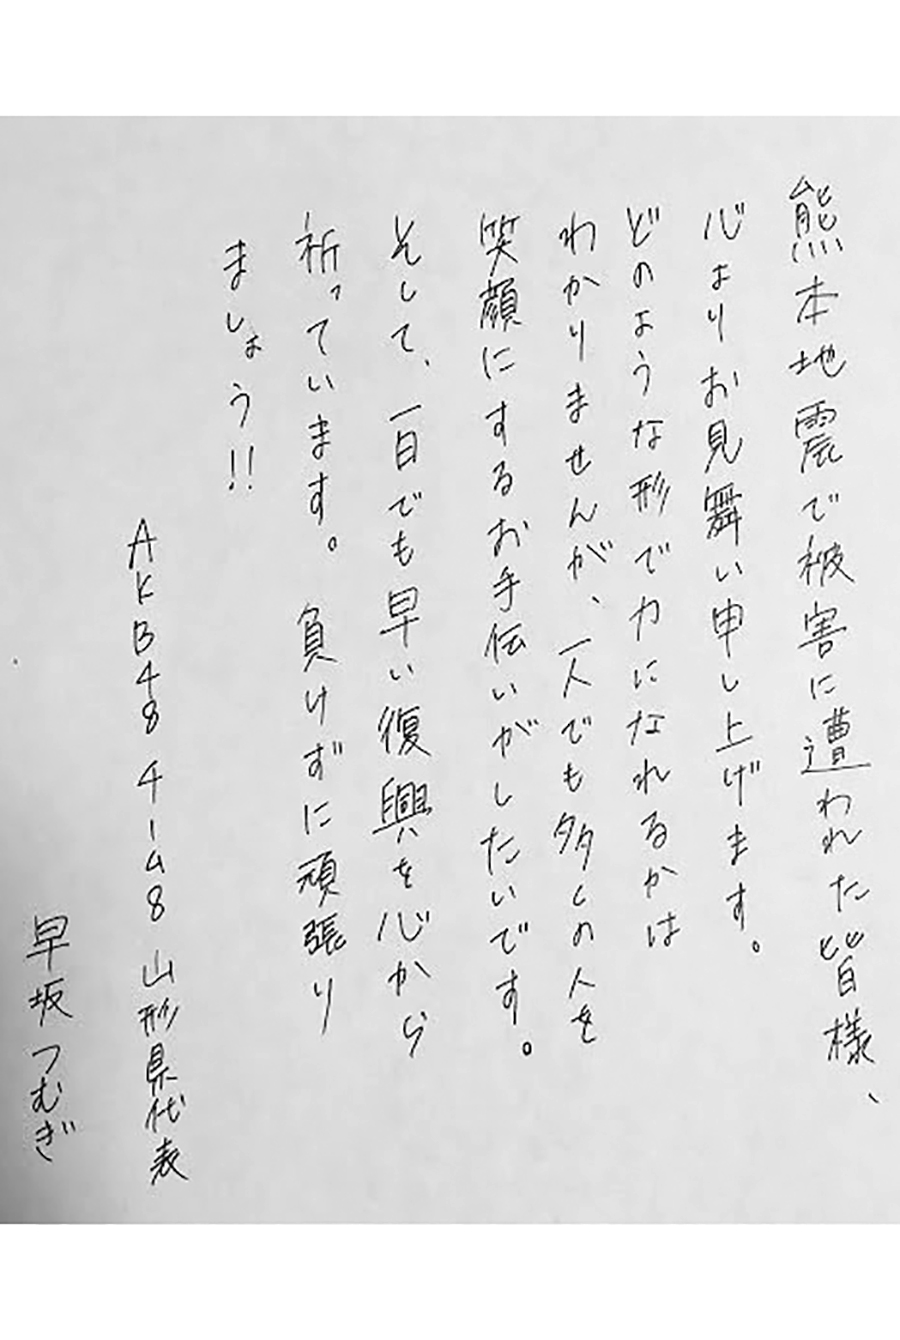 熊本地震で被害に遭われた皆様、
心よりお見舞い申し上げます。
どのような形で力になれるかは
わかりませんが、一人でも多くの人を
笑顔にするお手伝いがしたいです。
そして、一日でも早い復興を心から
祈っています。負けずに頑張り
ましょう!!
AKB48 チーム8 山形県代表
早坂つむぎ